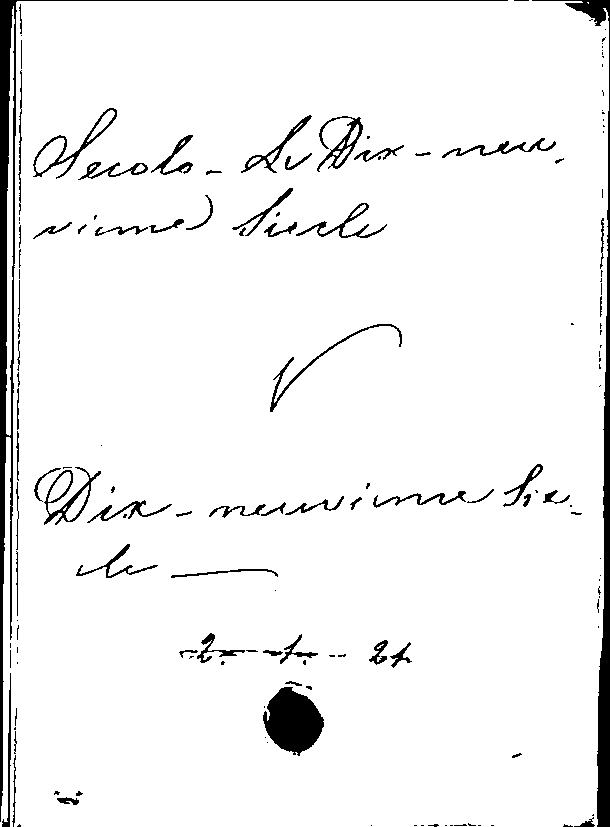 Secolo - Le Dix-neu-
vieme Siecle
V
Dix-neuvieme Sie-
cle —
2. - 1. - 21